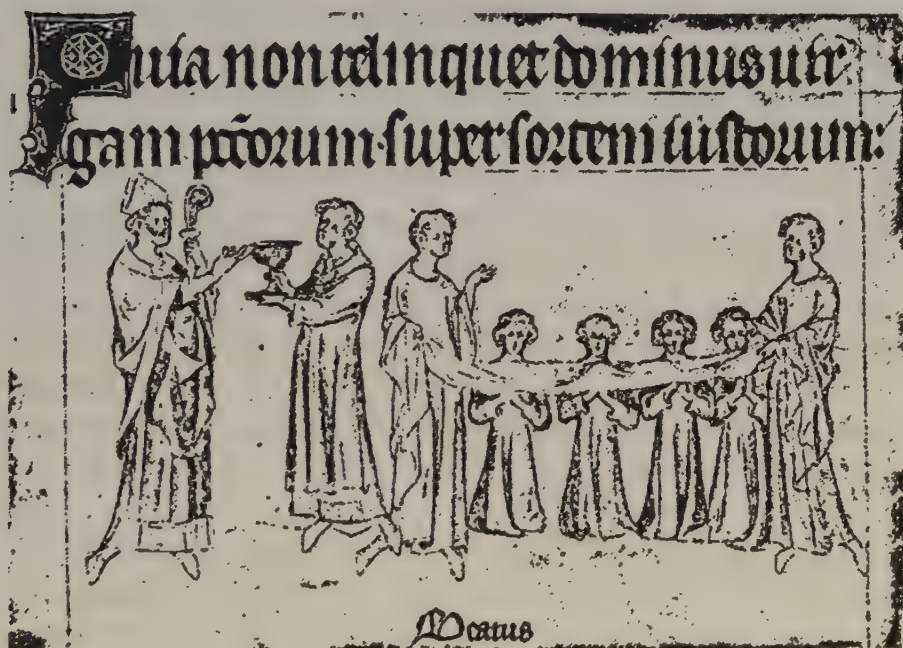 Quia non relinquet dominus uir
gam pctõrum super sortem iustorum: